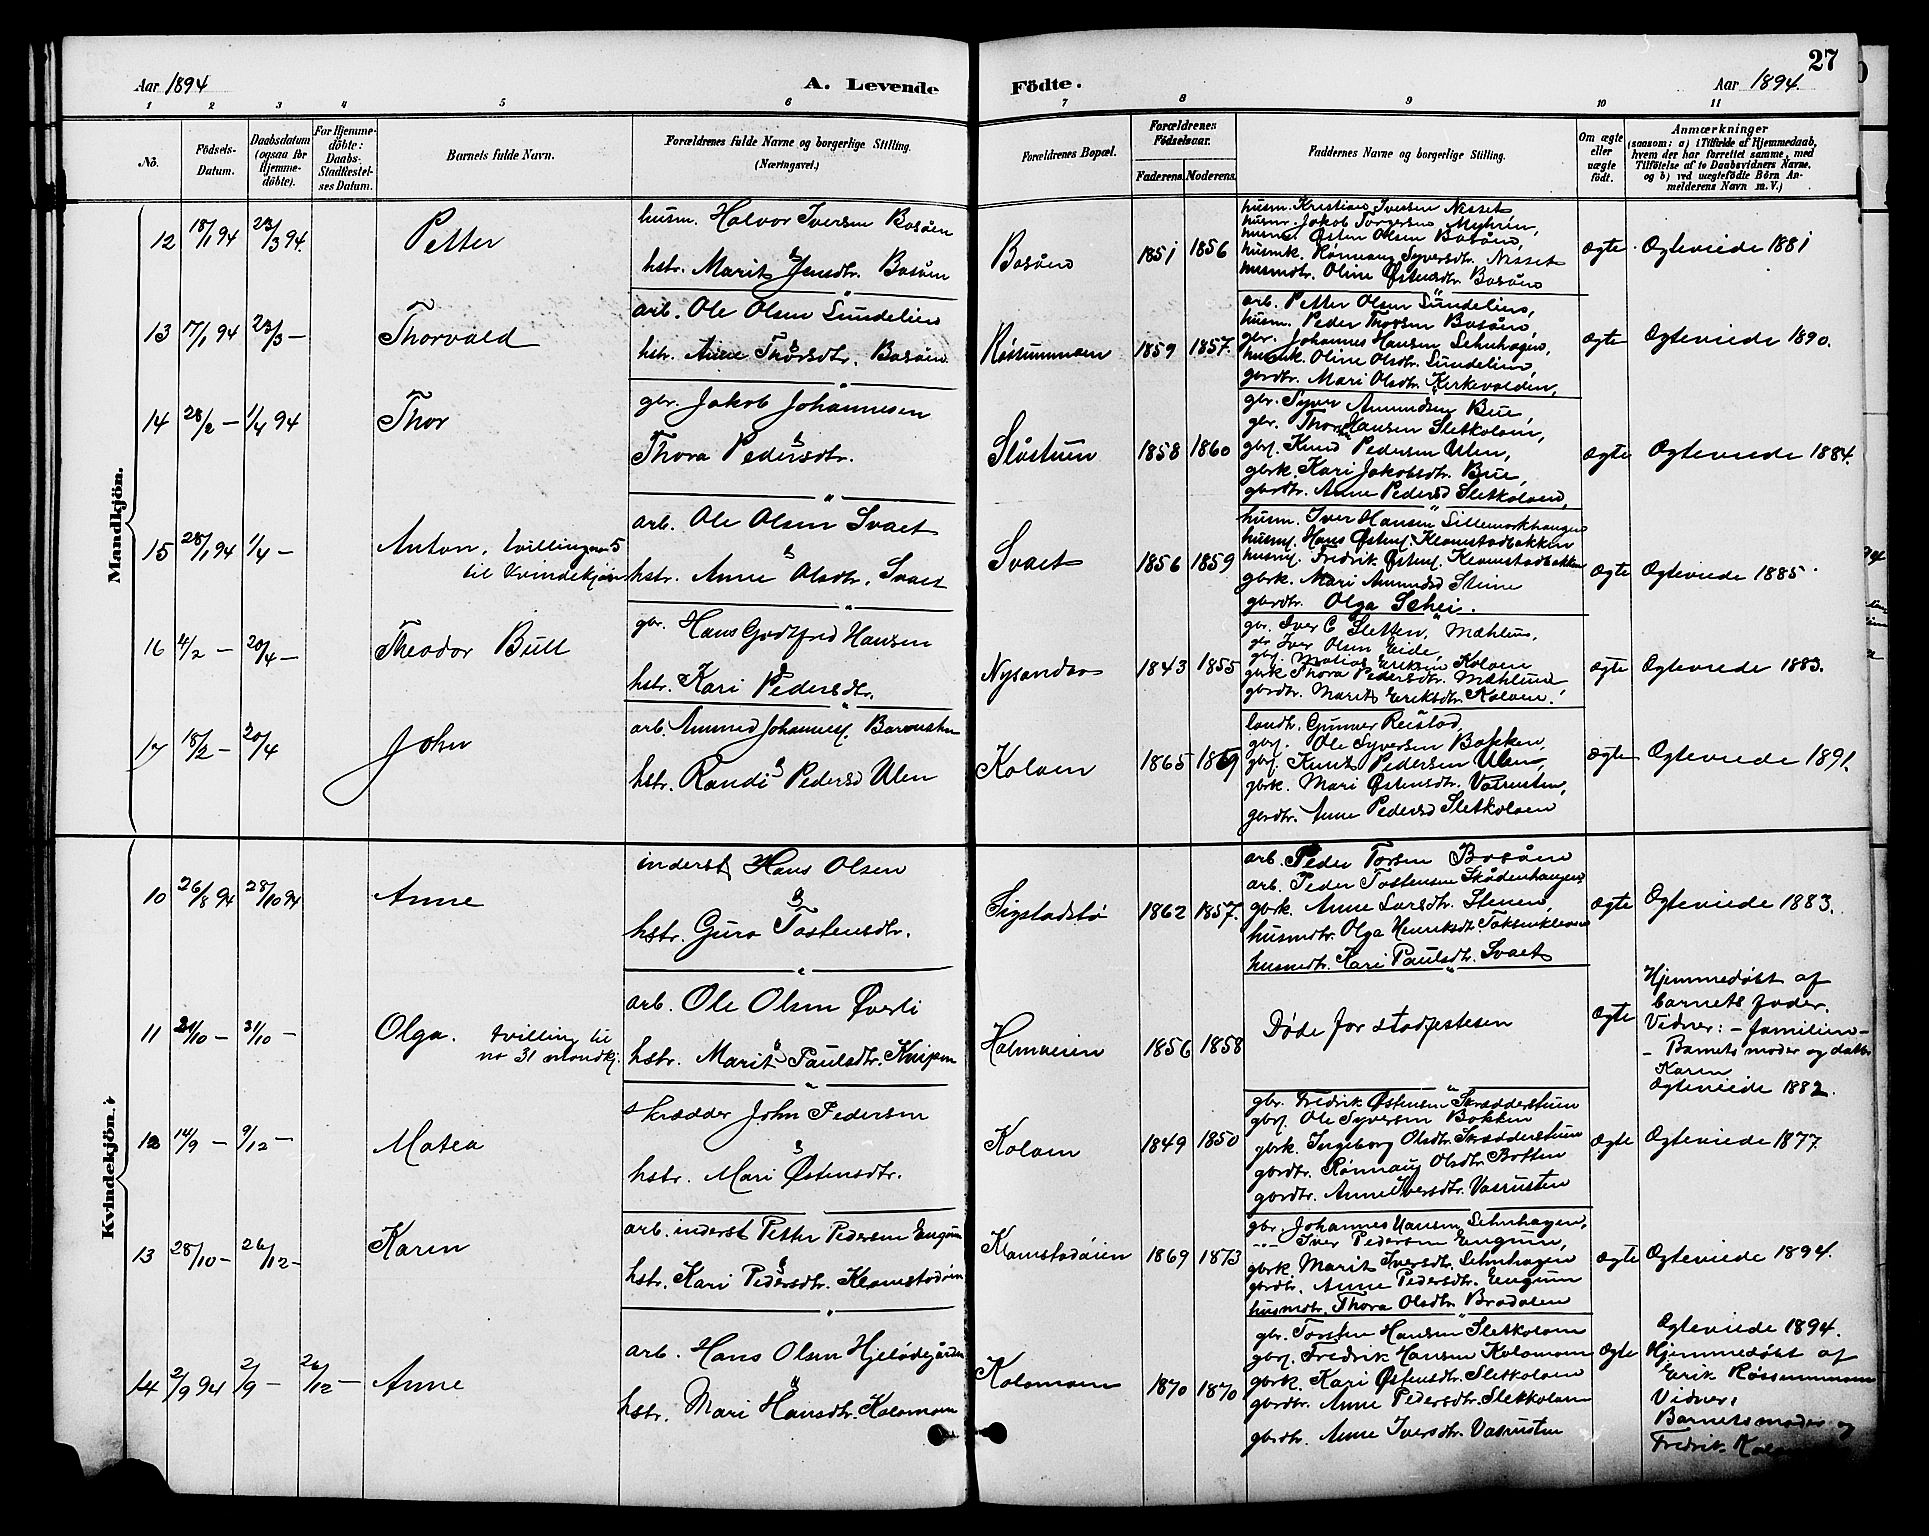 27
Aar 1894
A. Levende Födte.
Aar 1894.
1 2 3 4 5 6 7 8 9 10 11
No.
Födsels-Datum.
Daabsdatum (ogsaa for Hjemme-döbte).
For Hjemme-döbte: Daabs-Stadfæstel-ses Datum.
Barnets fulde Navn.
Forældrenes fulde Navne og borgerlige Stilling. (Næringsvei.)
Forældrenes Bopæl.
Forældrenes Födselsaar.
Faderens. Moderens.
Faddernes Navne og borgerlige Stilling.
Om ægte eller uægte födt.
Anmærkninger
(saasom: a) i Tilfælde af Hjemmedaab,
hvem der har forrettet samme, med
Tilföielse af to Daabsvidners Navne,
og b) ved uægtefödte Börn An-
melderens Navn m. V.)
Mandkjön.
12 18/1 94 23/3 94. Petter
husm. Halvor Iversen Bosøen
&
hstr. Marit Jensdtr. Bosøen
Bosøen 1851 1856
husm. Kristian Iversen Nisset
husm. Jakob Torgersen Myhren,
husm. Østen Olsen Bosøen,
husmk. Rønnaug Syversdtr. Nisset
husmdtr. Oline Østensdtr. Bosøen
ægte Ægteviede 1881
13 17/1 94 23/3 — Thorvald
arb. Ole Olsen Sundelien
&
hstr. Anne Thorsdtr. Bosøen
Røssummoen 1859 1857.
arb. Petter Olsen Sundelien,
husm. Peder Thorsen Bosøen,
gbr. Johannes Hansen Lehnhagen,
husmk. Oline Olsdtr. Sundelien,
gbrdtr. Mari Olsdtr. Kirkevolden,
ægte Ægteviede 1890.
14 28/2 — 1/4 94 Thor
gbr. Jakob Johannesen
&
Thora Pedersdtr.
Slåstuen 1858 1860
gbr. Syver Amundsen Bue,
gbr. Thor Hansen Sletkolven,
gbf. Knud Pedersen Ulen,
gbrk. Kari Jakobsdtr. Bue,
gbrdtr. Anne Pedersd Sletkolven,
ægte Ægteviede 1884.
15 28/1 94 1/4 — Anton, tvilling no 5
til Kvindekjøn
arb. Ole Olsen Svaet
&
hstr. Anne Olsdtr. Svaet
Svaet 1856 1859
husm. Iver Hansen Sillemorkhaugen
husmf. Hans Østenf. Klomstadbakken
husmf. Fredrik Østenf. Klomstadbakken
gbrk. Mari Amundsd Steine
gbrdtr. Olga Schei.
ægte Ægteviede 1885
16 4/2 — 20/4 — Theodor Bull
gbr. Hans Godtfred Hansen
&
hstr. Kari Pedersdtr.
Nysandaa 1843 1855
gbr. Iver C Sletten, Mæhlum,
gbr Iver Olsen Eide,
gbf. Matias Eriksen Kolven
gbrk Thora Pedersdtr. Mæhlum
gbrdtr. Marit Eriksdtr. Kolven.
ægte Ægteviede 1883.
17 18/2 — 20/4 John
arb. Ammund Johannesf.
&
hstr. Randi Pedersd Ulen
Kolven 1865 1869
landh. Gunner Reistad,
gbf. Ole Syversen Bakken,
gbf. Knut Pedersen Ulen,
gbrk. Mari Østensdtr. Vasrusten,
gbrdtr. Anne Pedersd Sletkolven
ægte Ægteviede 1891.
Kvindekjön.
10 26/8 94 28/10 94 Anne
inderst Hans Olsen
&
hstr. Guro Tostensdtr.
Sigstadstø 1862 1857.
arb. Peder Torsen Bosøen
arb. Peder Tostensen Skådenhaugen,
gbrk. Anne Larsdtr. Stenen,
husmdtr. Olga Henriksdtr. Toksenkleven
husmdtr. Kari Paulsdtr. Svaet
ægte Ægteviede 1883.
11 21/10 — 31/10 — Olga. tvilling til
no 31 mandkj.
arb. Ole Olsen Øverli
&
hstr. Marit Paulsdtr. Knipen
Holmveien 1856 1858
Døde før stadfestesen
ægte
Hjemmedøbt af
barnets fader.
Vidner: — familien —
— Barnets moder og datter
Karen
Ægteviede 1882.
12 14/9 — 9/12 — Matea
skrædder John Pedersen
&
hstr. Mari Østensdtr.
Kolven 1849 1850
gbr. Fredrik Østensen Skrædderstuen
gbrf. Ole Syversen Bakken
gbrk. Ingeborg Olsdtr. Skrædderstuen
gbrdtr. Rønnaug Olsdtr. Botten
gbrdtr. Anne Iversdtr. Vasrusten
ægte Ægteviede 1877.
13 28/10 — 26/12 — Karen
arb. inderst Petter Pedersen Engum
&
hstr. Kari Pedersdtr. Klomstadøien
Klomstadøien 1869 1873
gbr. Johannes Hansen Lehnhagen,
— Iver Pedersen Engum,
gbrk. Marit Iversdtr. Lehnhagen
gbrdtr. Anne Pedersdtr. Engum
husmdtr. Thora Olsdtr. Bradalen
ægte Ægteviede 1894.
14 2/9 94 2/9 — 26/12 — Anne
arb. Hans Olsen Hjelødegården
&
hstr. Mari Hansdtr. Kolomoen
Kolomoen 1870 1870
gbr. Torsten Hansen Sletkolven
gbrf. Fredrik Hansen Kolomoen
gbrk. Kari Østensdtr. Sletkolven
gbrdtr. Anne Pedersdtr. Sletkolven
gbrdtr. Anne Iversdtr. Vasrusten
ægte
Ægteviede 1894.
Hjemmedøbt af
Erik Røssummoen
Vidner:
Barnets moder og
Fredrik